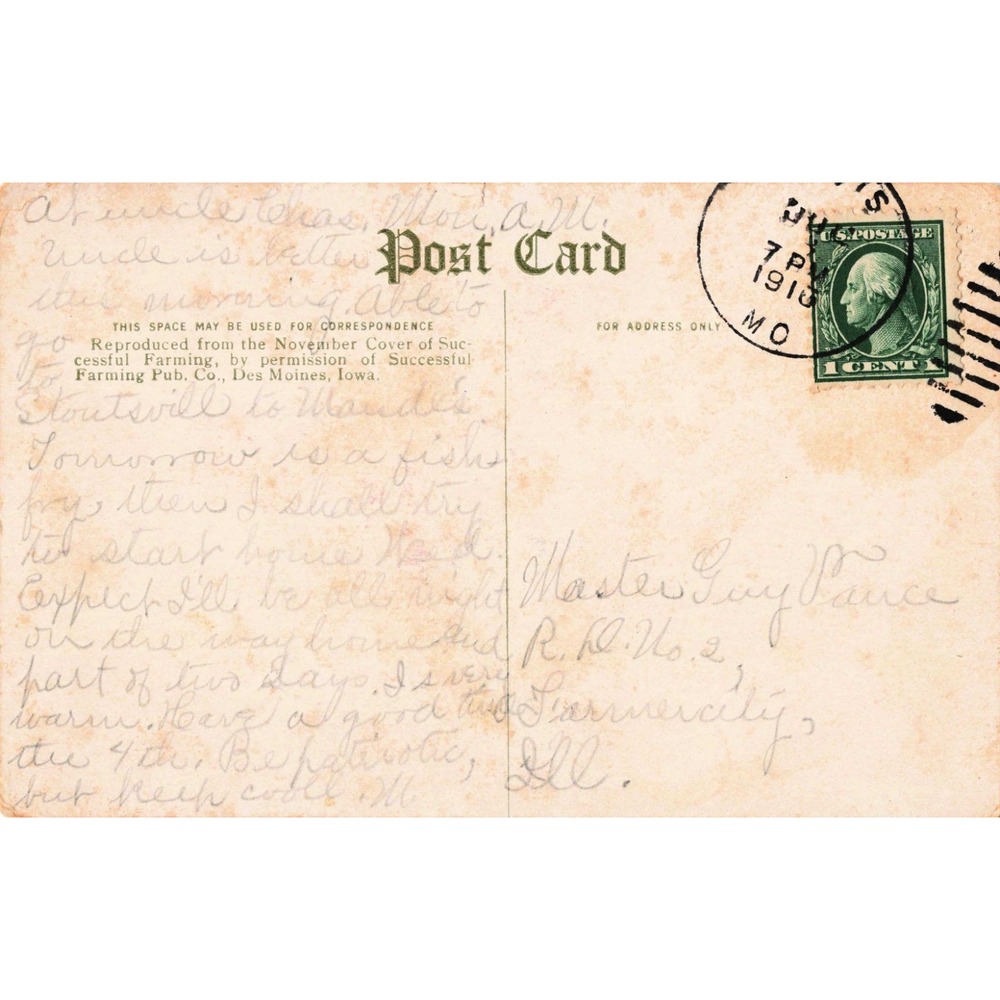 At uncle Chas. Mon. a.M.
Uncle is better
this morning. Able to
go
to
Stoutsvill to Maude's
Tomorrow is a fish
fry then I shall try
to start home Wed.
Expect I'll be all night
on the way home and
part of two days. Is very
warm. Have a good time
the 4th. Be patriotic,
but keep cool. M.
Post Card
THIS SPACE MAY BE USED FOR CORRESPONDENCE
Reproduced from the November Cover of Suc-
cessful Farming, by permission of Successful
Farming Pub. Co., Des Moines, Iowa.
FOR ADDRESS ONLY
7 PM
MO
U.S. POSTAGE
1 CENT 1
Master Guy Vance
R. D. No. 2,
Farmercity,
Ill.